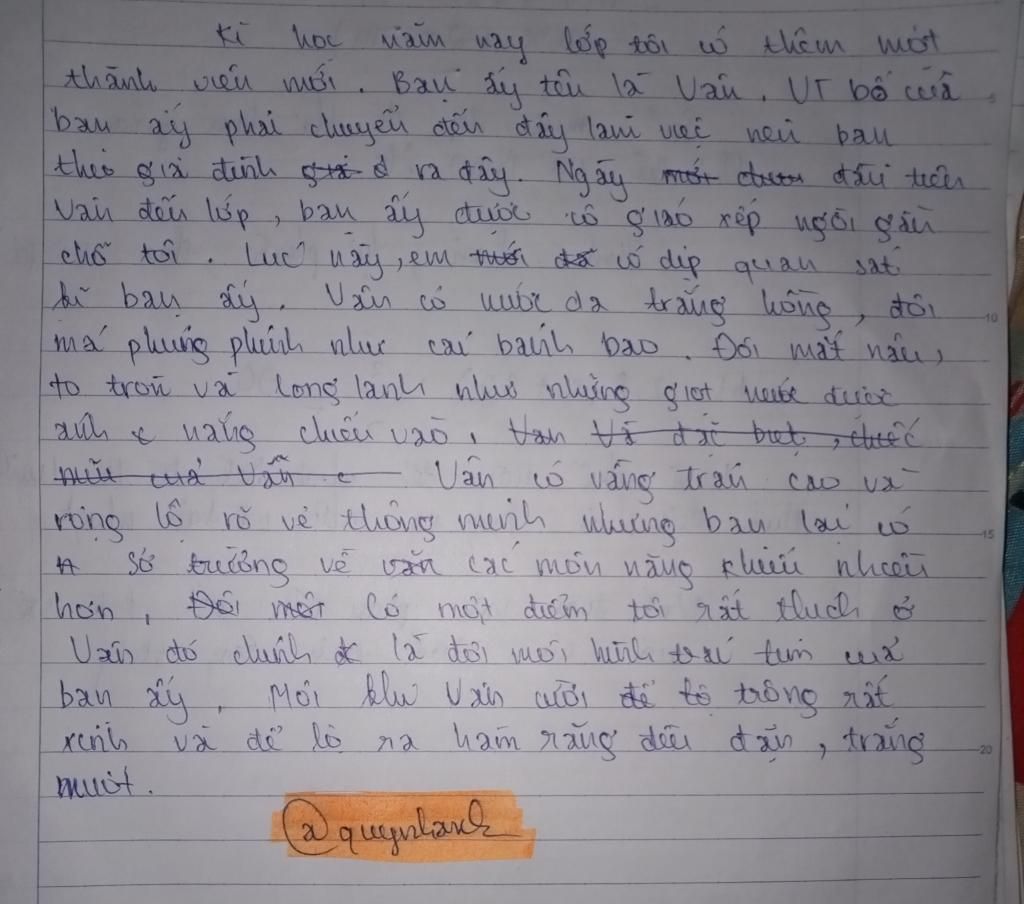 Kì học năm nay lớp tôi có thêm một
thành viên mới. Bạn ấy tên là Vân. Vì bố của
bạn ấy phải chuyển đến đây làm việc nên bạn
theo gia đình ra đây. Ngày đầu tiên
Vân đến lớp, bạn ấy được cô giáo xếp ngồi gần
chỗ tôi. Lúc này, em có dịp quan sát
kĩ bạn ấy. Vân có nước da trắng hồng, đôi
má phúng phính như cái bánh bao. Đôi mắt nâu,
to tròn và long lanh như những giọt nước được
ánh nắng chiếu vào.
Vân có vầng trán cao và
rộng lộ rõ vẻ thông minh nhưng bạn lại có
sở trường về các môn năng khiếu nhiều
hơn. Có một điểm tôi rất thích ở
Vân đó chính là đôi môi hình trái tim của
bạn ấy. Mỗi khi Vân cười trông rất
xinh và để lộ ra hàm răng đều đặn, trắng
muốt.
@quynhanh